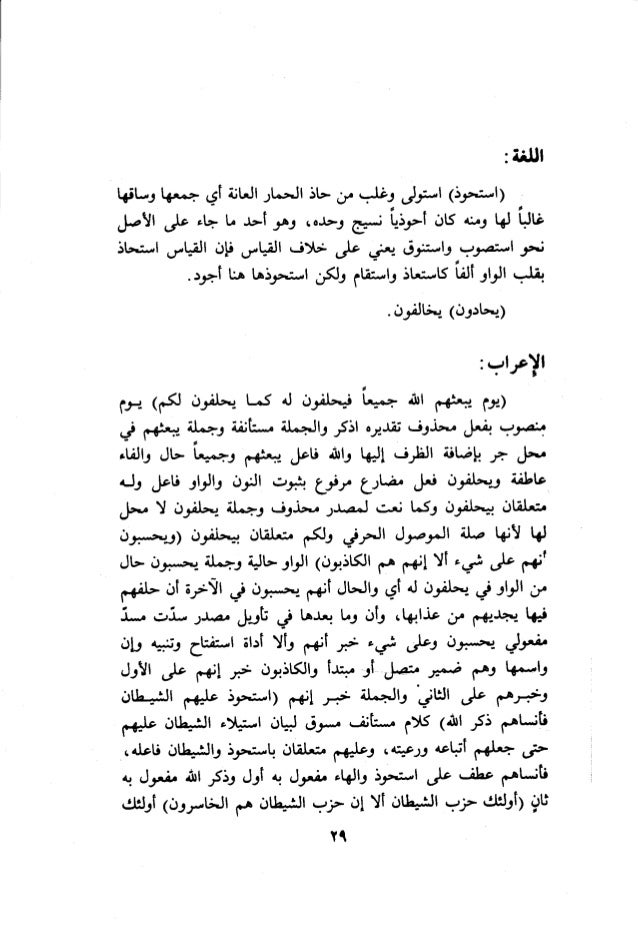 اللغة :
(استحوذ) استولى وغلب من حاذ الحمار العانة أي جمعها وساقها
غالباً لها ومنه كان أحوذياً نسيج وحده، وهو أحد ما جاء على الأصل
نحو استصوب واستنوق يعني على خلاف القياس فإن القياس استحاذ
بقلب الواو ألفاً كاستعاذ واستقام ولكن استحوذها هنا أجود.
(يحادون) يخالفون.
الإعراب :
(يوم يبعثهم الله جميعاً فيحلفون له كما يحلفون لكم) يوم
منصوب بفعل محذوف تقديره اذكر والجملة مستأنفة وجملة يبعثهم في
محل جر بإضافة الظرف إليها والله فاعل يبعثهم وجميعاً حال والفاء
عاطفة ويحلفون فعل مضارع مرفوع بثبوت النون والواو فاعل وله
متعلقان بيحلفون وكما نعت لمصدر محذوف وجملة يحلفون لا محل
لها لأنها صلة الموصول الحرفي ولكم متعلقان بيحلفون (ويحسبون
أنهم على شيء ألا إنهم هم الكاذبون) الواو حالية وجملة يحسبون حال
من الواو في يحلفون له أي والحال أنهم يحسبون في الآخرة أن حلفهم
فيها يجديهم من عذابها، وأن وما بعدها في تأويل مصدر سدّت مسدّ
مفعولي يحسبون وعلى شيء خبر أنهم وألا أداة استفتاح وتنبيه وإن
واسمها وهم ضمير متصل أو مبتدأ والكاذبون خبر إنهم على الأول
وخبرهم على الثاني والجملة خبر إنهم (استحوذ عليهم الشيطان
فأنساهم ذكر الله) كلام مستأنف مسوق لبيان استيلاء الشيطان عليهم
حتى جعلهم أتباعه ورعيته، وعليهم متعلقان باستحوذ والشيطان فاعله،
فأنساهم عطف على استحوذ والهاء مفعول به أول وذكر الله مفعول به
ثانٍ (أولئك حزب الشيطان ألا إن حزب الشيطان هم الخاسرون) أولئك
٢٩